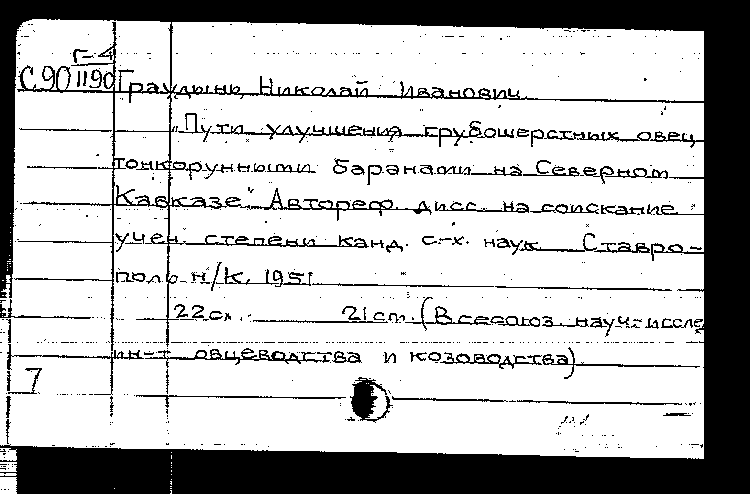 Г-4
С.90 1190 Граудынь, Николай Иванович
„Пути улучшения грубошерстных овец
тонкорунными баранами на Северном
Кавказе." Автореф. дисс. на соискание
учен. степени канд. с-х. наук Ставро-
поль н/К. 1951
22 см. 21 ст. (Всесоюз. науч-иссле
ин-т овцеводства и козоводства)
7